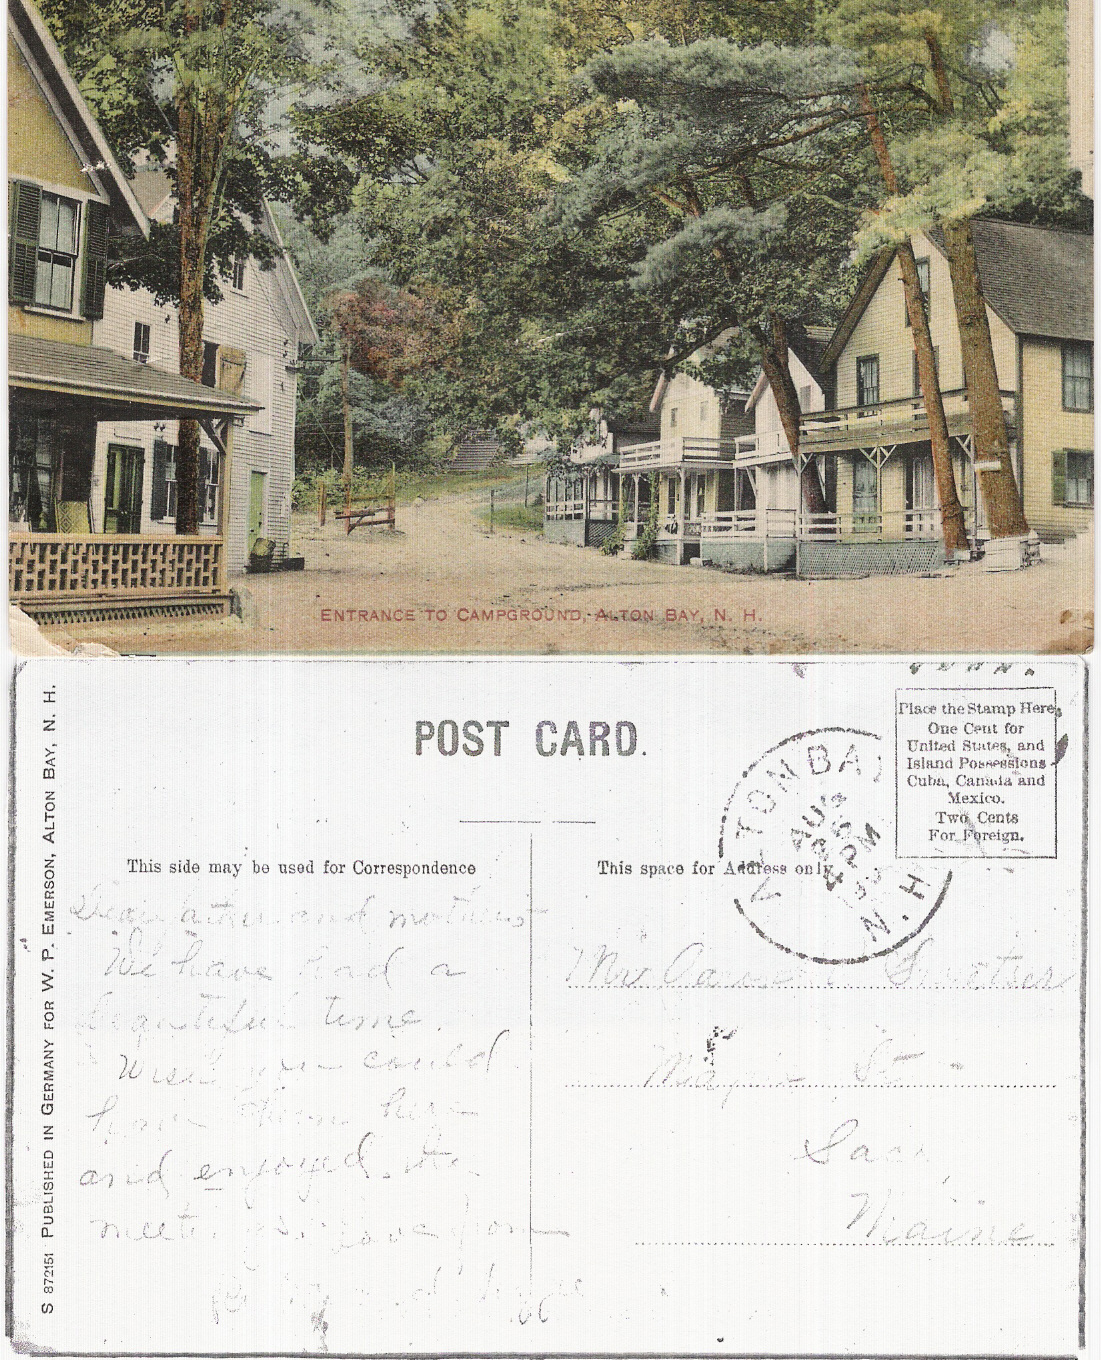 ENTRANCE TO CAMPGROUND, ALTON BAY, N. H.
S 872151 PUBLISHED IN GERMANY FOR W. P. EMERSON, ALTON BAY, N. H.
POST CARD.
Place the Stamp Here,
One Cent for
United States, and
Island Possessions
Cuba, Canada and
Mexico.
Two Cents
For Foreign.
ALTON BAY
AUG
4 PM
N.H.
This side may be used for Correspondence
This space for Address only
and mother
We have had a
beautiful time.
Wish you could
have been here
and enjoyed the
love from
Mr Sweetser
St
Saco
Maine